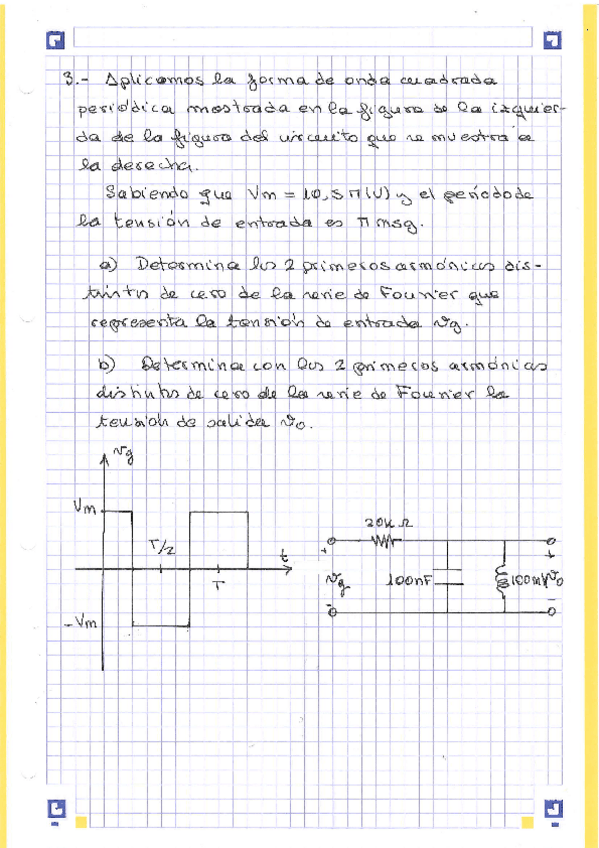 3.- Aplicamos la forma de onda cuadrada
periódica mostrada en la figura de la izquier-
da de la figura del circuito que se muestra a
la derecha.
Sabiendo que Vm = 10,5 π (V) y el período de
la tensión de entrada es π msg.
a) Determina los 2 primeros armónicos dis-
tintos de cero de la serie de Fourier que
representa la tensión de entrada vg.
b) Determina con los 2 primeros armónicos
distintos de cero de la serie de Fourier la
tensión de salida vo.
vg
Vm
T/2
t
T
-Vm
20k Ω
+
+
vg
100nF
vo
-
-